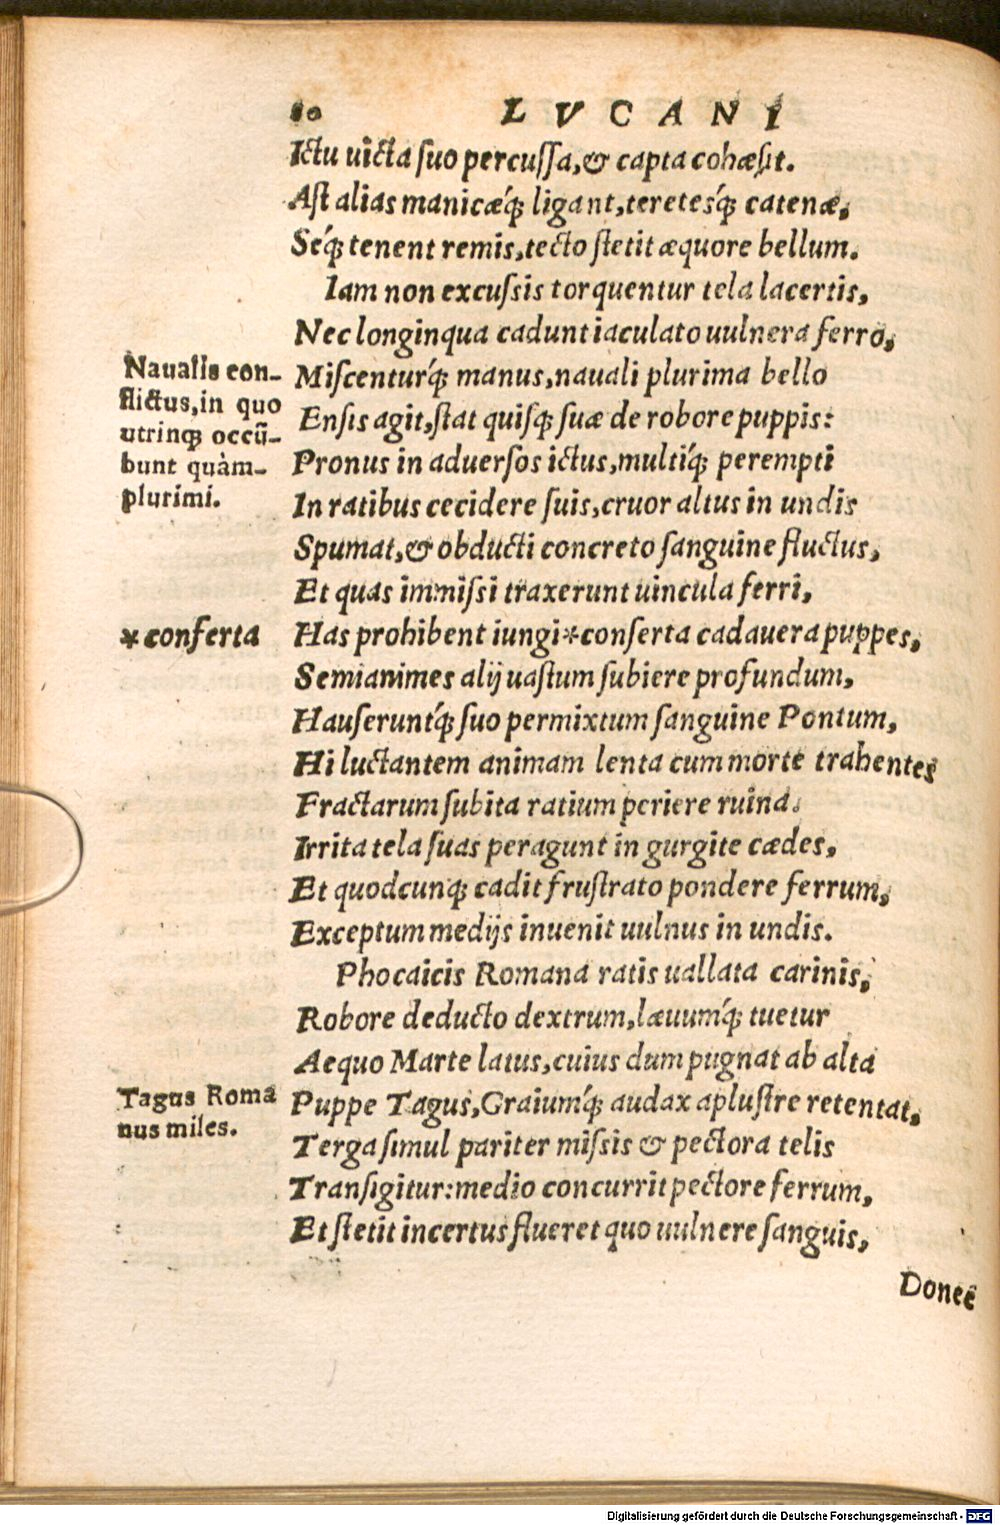 80 LVCANI
Ictu uicta suo percussa, & capta cohæsit.
Ast alias manicæq́ꝫ ligant, teretesq́ꝫ catenæ,
Seq́ꝫ tenent remis, tecto stetit æquore bellum.
Iam non excussis torquentur tela lacertis,
Nec longinqua cadunt iaculato uulnera ferro,
Naualis con-
flictus, in quo
utrinqꝫ occũ-
bunt quàm-
plurimi.
Miscenturq́ꝫ manus, nauali plurima bello
Ensis agit, stat quisqꝫ suæ de robore puppis:
Pronus in aduersos ictus, multiq́ꝫ perempti
In ratibus cecidere suis, cruor altus in undis
Spumat, & obducti concreto sanguine fluctus,
Et quas immissi traxerunt uincula ferri,
*conferta
Has prohibent iungi*conserta cadauera puppes,
Semianimes alij uastum subiere profundum,
Hauseruntq́ꝫ suo permixtum sanguine Pontum,
Hi luctantem animam lenta cum morte trahentes
Fractarum subita ratium periere ruina.
Irrita tela suas peragunt in gurgite cædes,
Et quodcunqꝫ cadit frustrato pondere ferrum,
Exceptum medijs inuenit uulnus in undis.
Phocaicis Romana ratis uallata carinis,
Robore deducto dextrum, læuumq́ꝫ tuetur
Aequo Marte latus, cuius dum pugnat ab alta
Tagus Roma
nus miles.
Puppe Tagus, Graiumq́ꝫ audax aplustre retentat,
Terga simul pariter missis & pectora telis
Transigitur: medio concurrit pectore ferrum,
Et stetit incertus flueret quo uulnere sanguis,
Donec
Digitalisierung gefördert durch die Deutsche Forschungsgemeinschaft - DFG